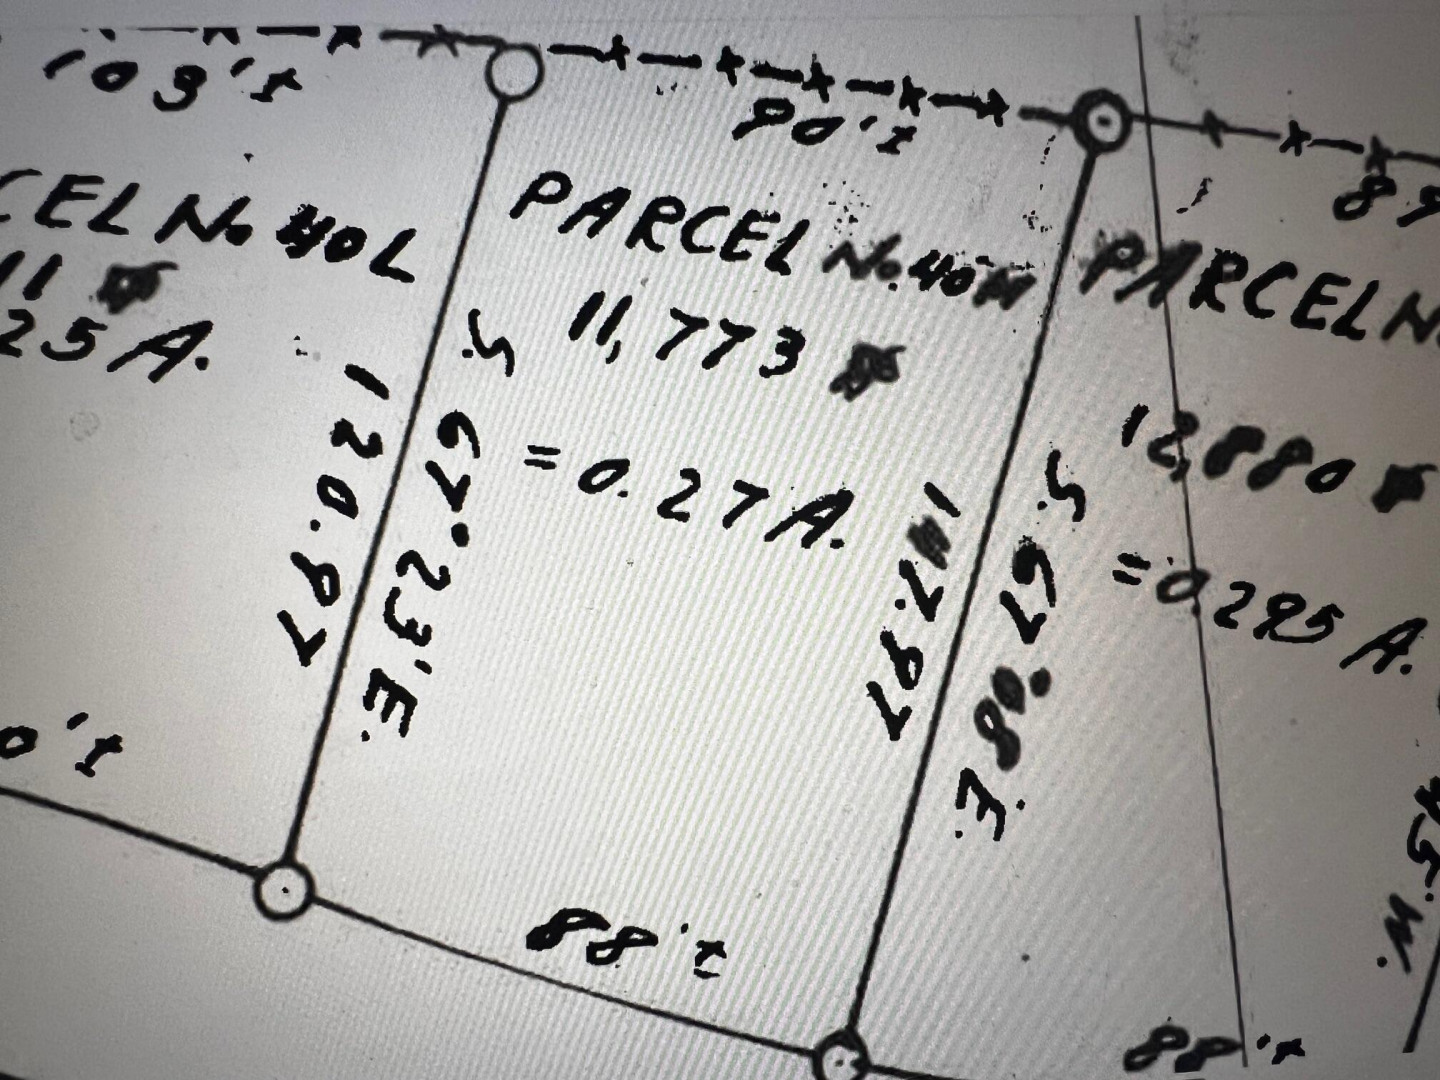 103.'±
90.'±
89
CEL No. 40L
11
25 A.
PARCEL No. 40M
11,773
= 0.27 A.
PARCEL N
12,880
= 0.295 A.
120.97
S. 67° 23' E.
147.97
S. 67° 08' E.
0'±
88.'±
88'±
W.